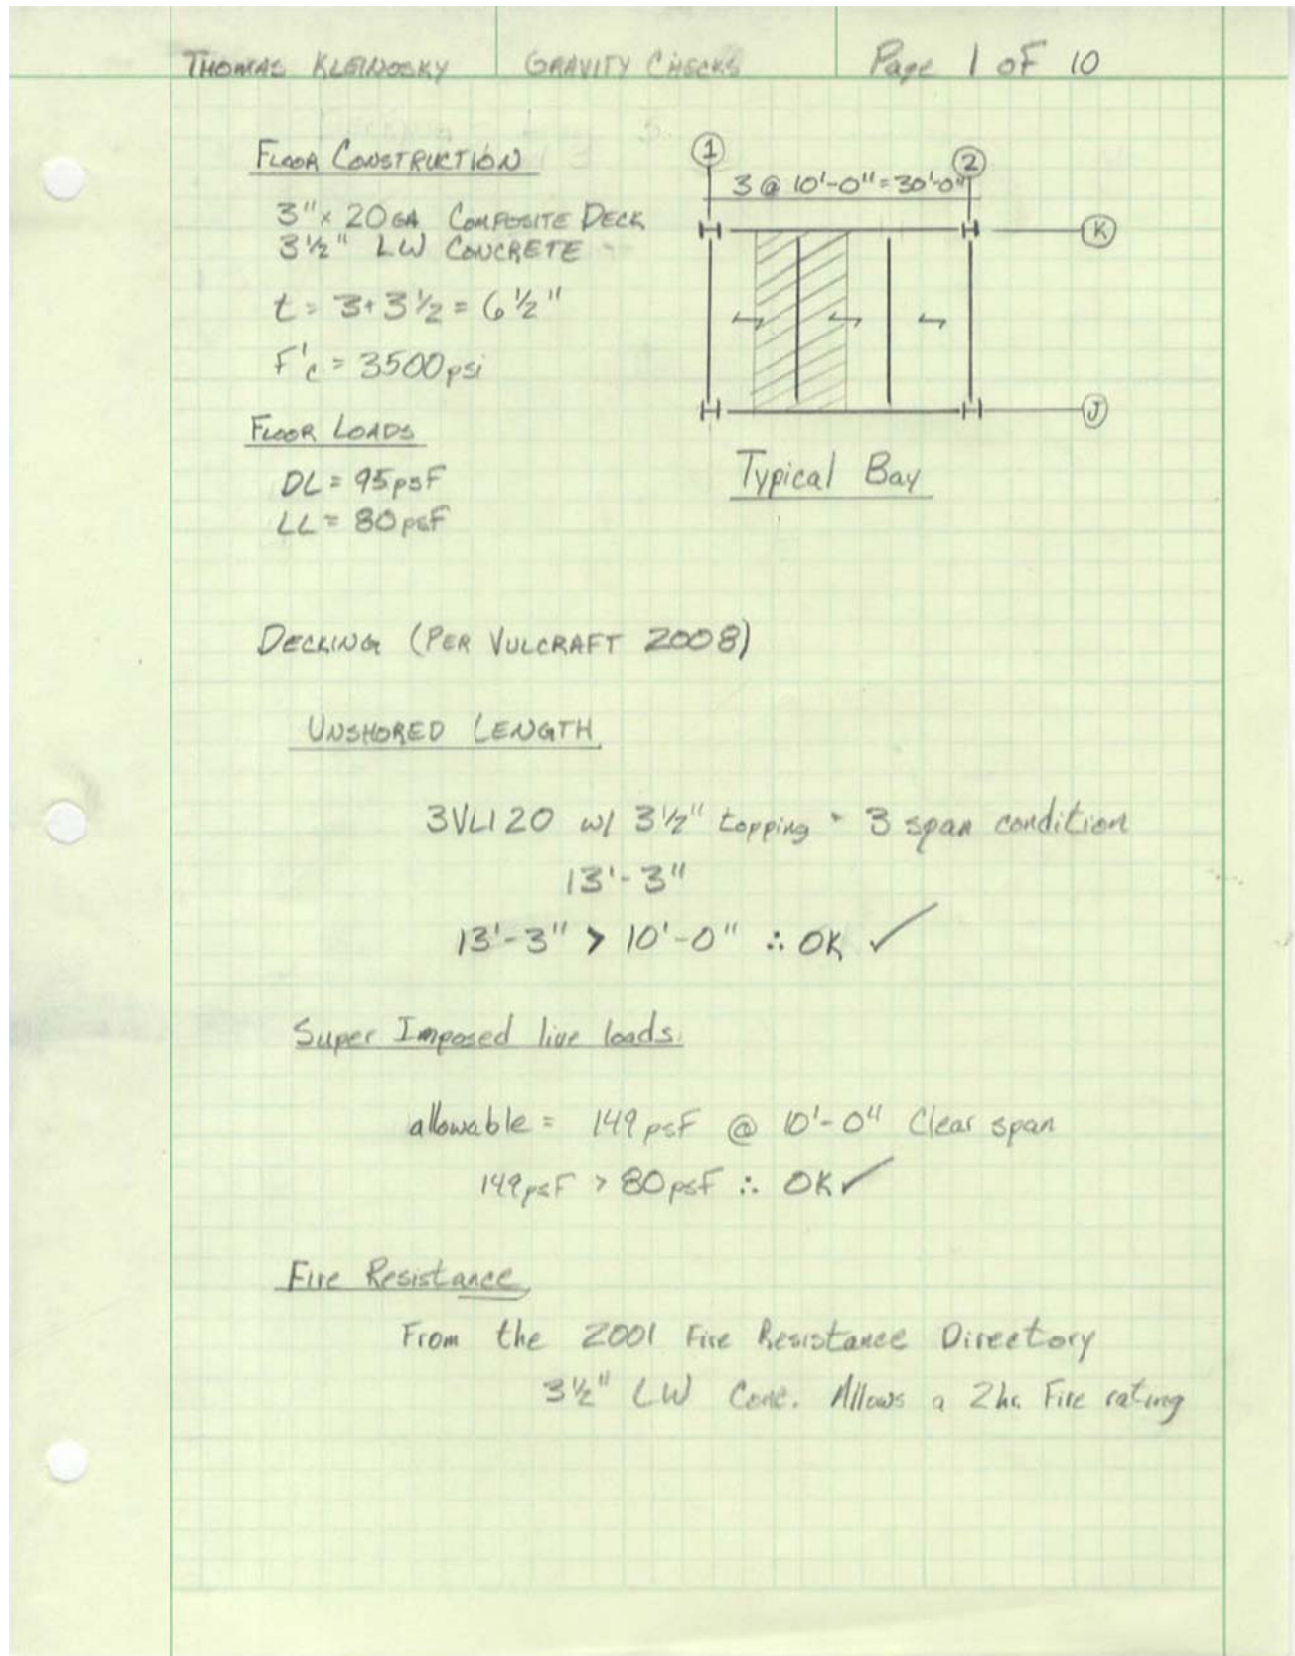 THOMAS KLEINOSKY GRAVITY CHECKS Page 1 of 10
FLOOR CONSTRUCTION
3" x 20 GA COMPOSITE DECK
3 1/2" LW CONCRETE
t = 3 + 3 1/2 = 6 1/2"
F'c = 3500 psi
FLOOR LOADS
DL = 95 psF
LL = 80 psF
1
2
3 @ 10'-0" = 30'-0"
K
J
Typical Bay
DECKING (PER VULCRAFT 2008)
UNSHORED LENGTH
3VLI20 w/ 3 1/2" topping - 3 span condition
13'-3"
13'-3" > 10'-0" ∴ OK ✓
Super Imposed live loads
allowable = 149 psF @ 10'-0" Clear span
149 psF > 80 psF ∴ OK ✓
Fire Resistance
From the 2001 Fire Resistance Directory
3 1/2" LW Conc. Allows a 2 hr. Fire rating